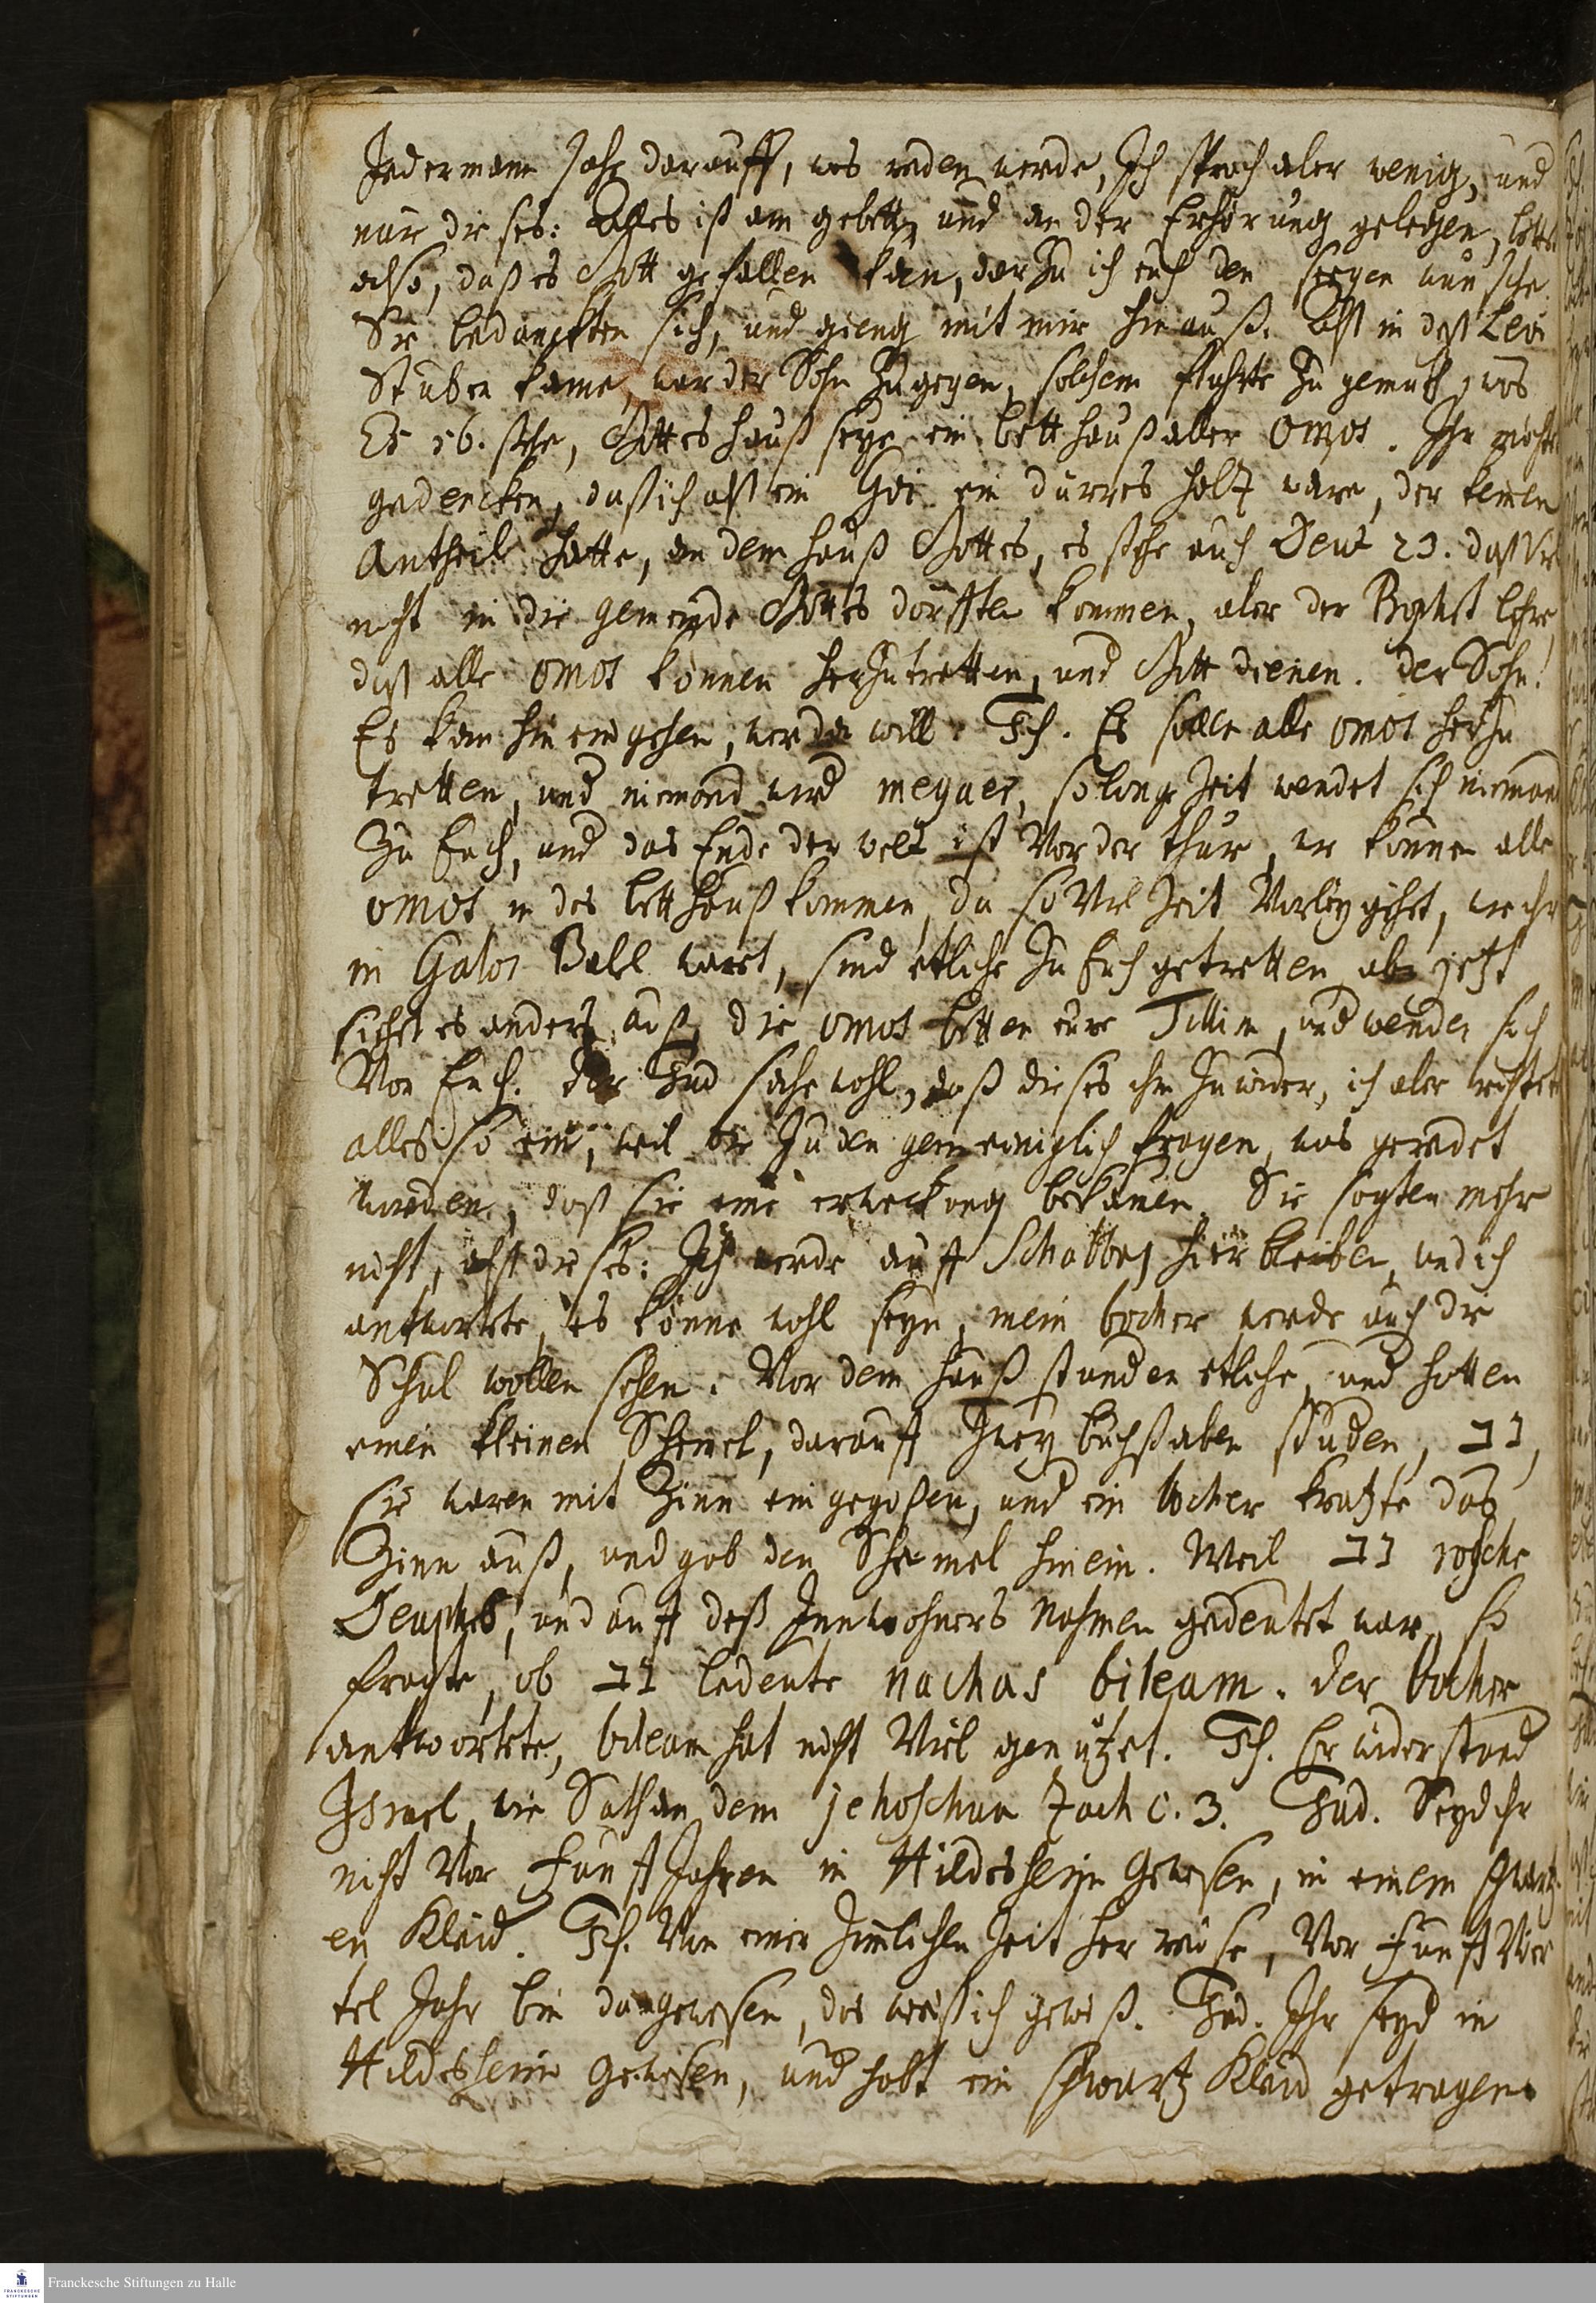 Jedermann sahe darauff, was reden werde, Ich sprach aber wenig, und
nur dieses: Alles ist am gebett, und an der Erhörung gelegen, bettet
also, daß es Gott gefallen kan, darzu ich euch den seegen wünsche.
Sie bedanckten sich, und gieng mit mir hinauß. Alß in deß Levi
Stuben kame, war der Sohn zugegen, solchem führte zu gemüth, was
Es 56. stehe, Gottes hauß seye ein betthauß aller Omos. Ihr möchtet
gedencken, daß ich alß ein Goi ein dürres holtz wäre, der keinen
Antheil hätte, an dem hauß Gottes, es stehe auch Deut 23. daß Viele
nicht in die gemeinde Gottes dörfften kommen, aber der Prophet lehre,
daß alle omos können herzutretten, und Gott dienen. Der Sohn:
Es kan hineingehen, wer da will. Ich. Es sollen alle omos herzu
tretten, und niemand wird megaier, so lange Zeit wendet sich niemand
Zu Euch, und das Ende der welt ist Vor der thür, wie können alle
omos in das betthauß kommen, da so Viel Zeit Vorbey gehet, wie ihr
in Galos Babel waret, sind etliche Zu Euch getretten, aber jetzt
siehet es anderst auß, die omos betten eure Tillim, und wenden sich
Von Euch. Der Jud sahe wohl, daß dieses ihm zuwider, ich aber richtete
alles so ein, weil die Juden gemeiniglich fragen, was geredet
worden, daß sie eine erweckung bekämen. Sie sagten mehr
nicht, alß dieses: Ich werde auff Schabbes hier bleiben, und ich
antwortete, es könne wohl seyn, mein bocher werde auch die
Schul wollen sehen. Vor dem hauß stunden etliche, und hatten
einen kleinen Schemel, darauff Zwey buchstaben stunden, נב,
sie waren mit Zinn eingegoßen, und ein bocher kratzte das
Zinn auß, und gab den Schemel hinein. Weil נב rosche
und auff deß Innwohners Nahmen gedeutet war, so
fragte, ob נב bedeute nachas bileam. Der bocher
antwortete, bileam hat nicht Viel genützet. Ich. Er widerstand
Israel, wie Sathan dem jehoschua Zach c. 3. Jud. Seyd ihr
nicht Vor fünff Jahren in Hildesheim gewesen, in einem schwartz
en Kleid. Ich. Von einer zimlichen Zeit her reise, Vor fünff Vier
tel Jahr bin da gewesen, das weiß ich gewiß. Jud. Ihr seyd in
Hildesheim gewesen, und habt ein schwartz Kleid getragen.
Franckesche Stiftungen zu Halle